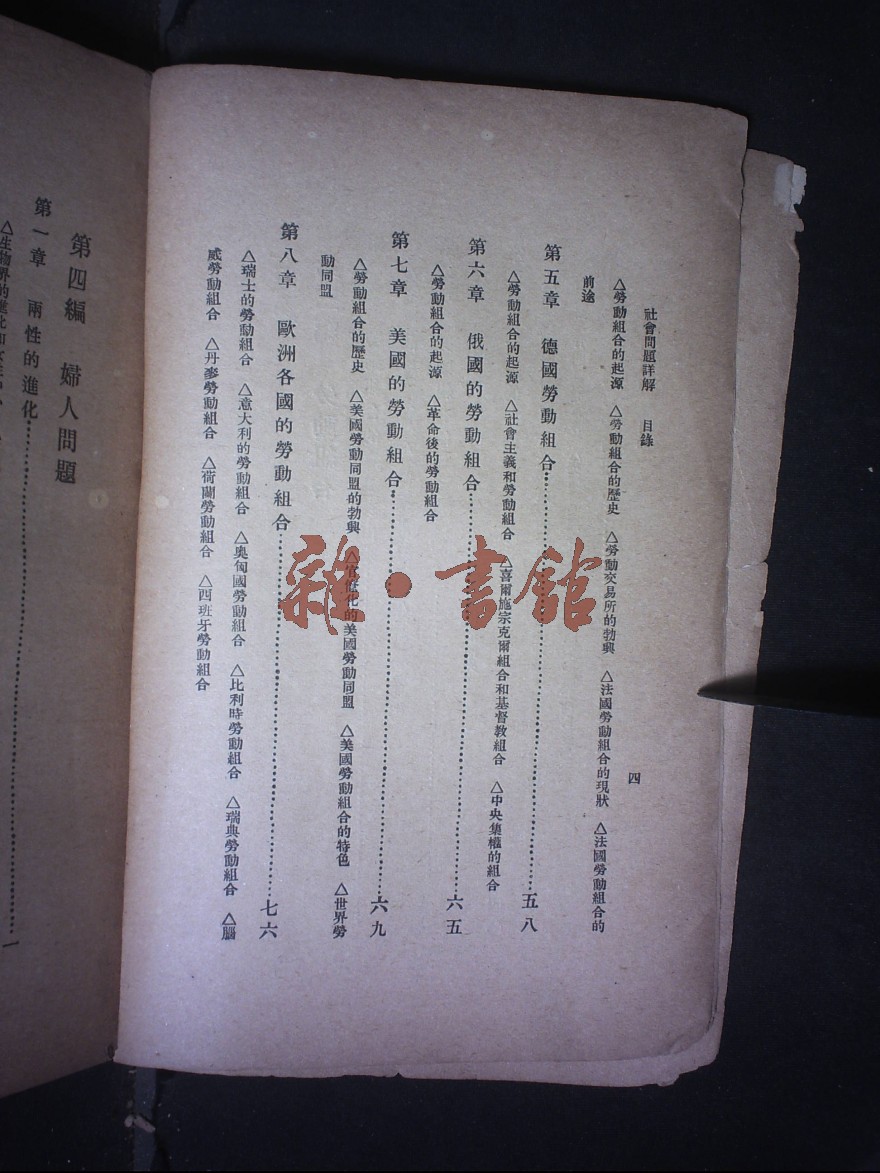 社會問題詳解　目錄
四
△勞動組合的起源　△勞動組合的歷史　△勞動交易所的勃興　△法國勞動組合的現狀　△法國勞動組合的
前途
第五章　德國的勞動組合……五八
△勞動組合的起源　△社會主義和勞動組合　△喜爾施宗克爾組合和基督教組合　△中央集權的組合
第六章　俄國的勞動組合……六五
△勞動組合的起源　△革命後的勞動組合
第七章　美國的勞動組合……六九
△勞動組合的歷史　△美國勞動同盟的勃興　△官僚化的美國勞動同盟　△美國勞動組合的特色　△世界勞
動同盟
第八章　歐洲各國的勞動組合……七六
△瑞士的勞動組合　△意大利的勞動組合　△奧匈國勞動組合　△比利時勞動組合　△瑞典勞動組合　△腦
威勞動組合　△丹麥勞動組合　△荷蘭勞動組合　△西班牙勞動組合
第四編　婦人問題
第一章　兩性的進化……一
△生物界的進化和女性
雜·書館